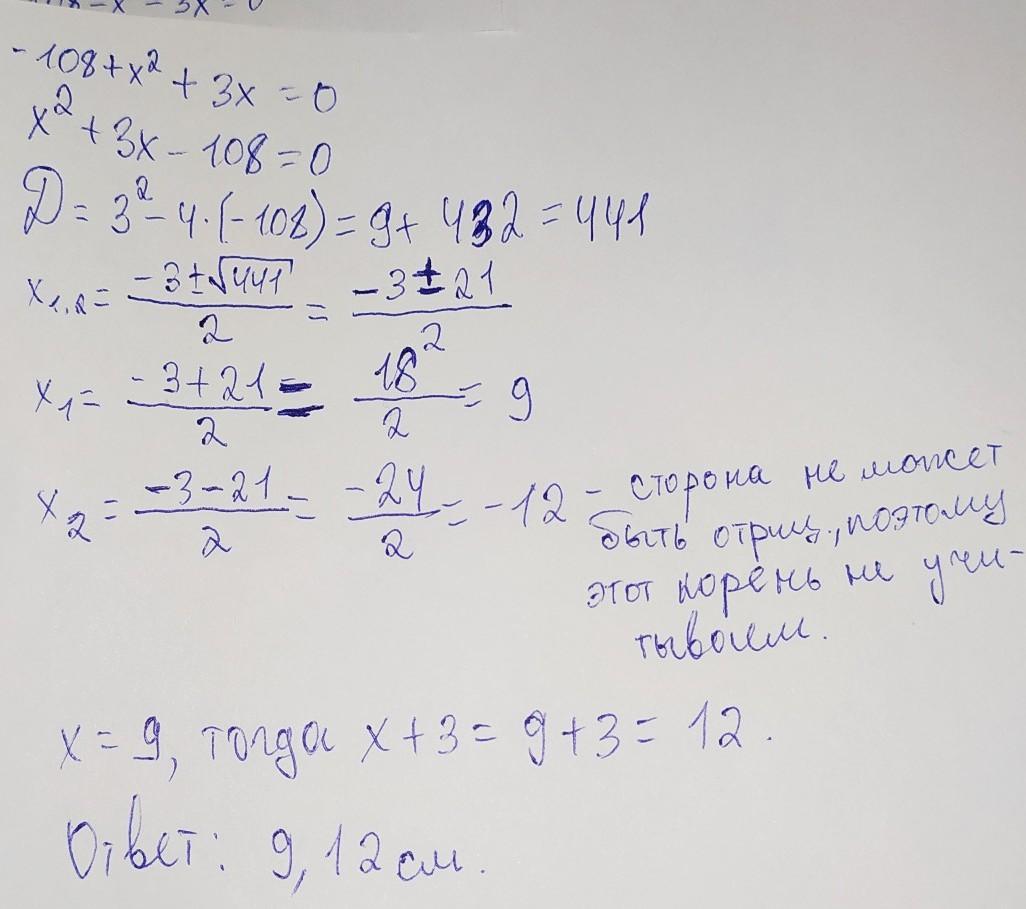 -108+x²+3x=0
x²+3x-108=0
D=3²-4·(-108)=9+432=441
x₁,₂=(-3±√441)/2=(-3±21)/2
x₁=(-3+21)/2=18²/2=9
x₂=(-3-21)/2=-24/2=-12 - сторона не может
быть отриц., поэтому
этот корень не учи-
тываем.
x=9, тогда x+3=9+3=12.
Ответ: 9, 12см.